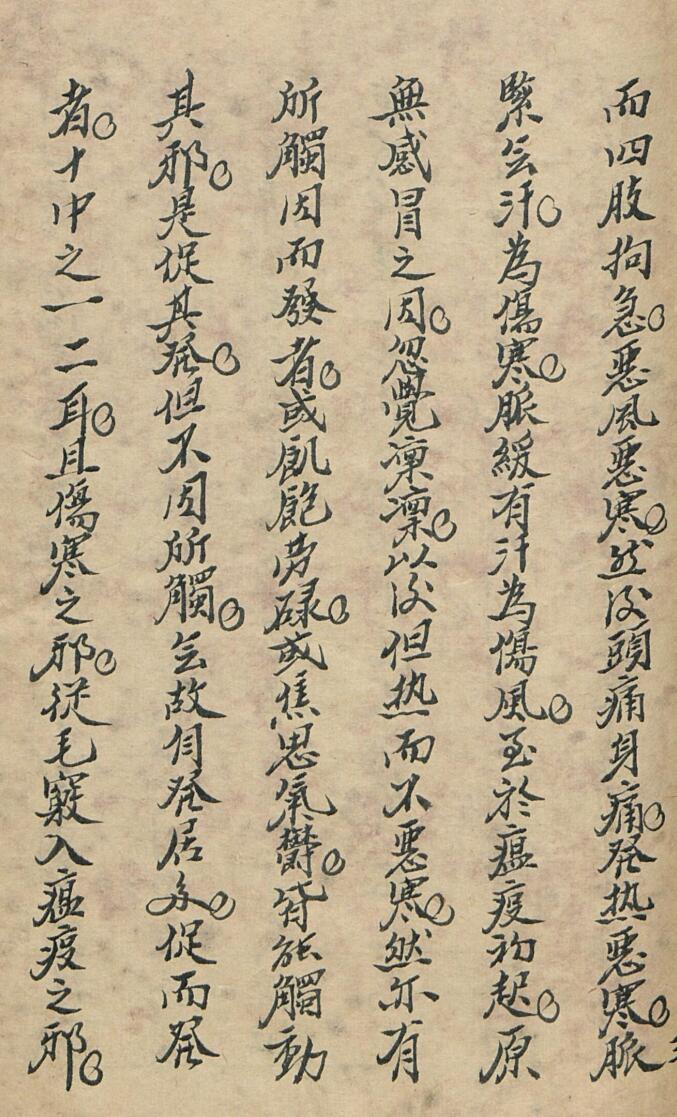 而四肢拘急。惡風惡寒。然后頭痛身痛。發热惡寒。脈
緊无汗。為傷寒。脈緩有汗為傷風。至於瘟疫初起。原
無感冒之因。忽覺凜凜。以后但热而不惡寒。然亦有
所觸因而發者。或飢飽劳碌。或焦思氣鬱。皆能觸動
其邪。是促其發。但不因所觸。无故自發居多。促而發
者。十中之一二耳。且傷寒之邪。從毛竅入瘟疫之邪。